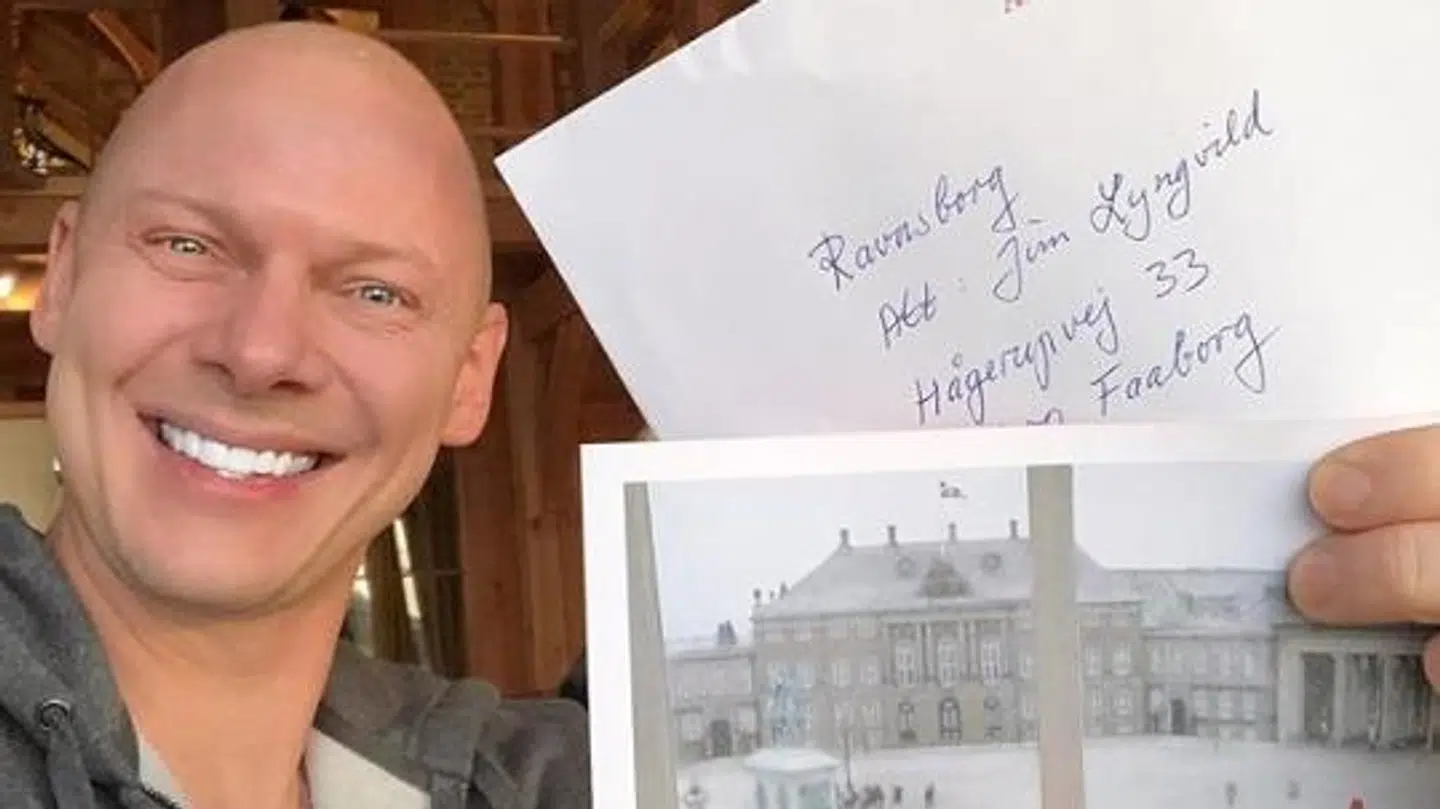 Ravnsborg
Att: Jim Lyngvild
Hågerupvej 33
Faaborg